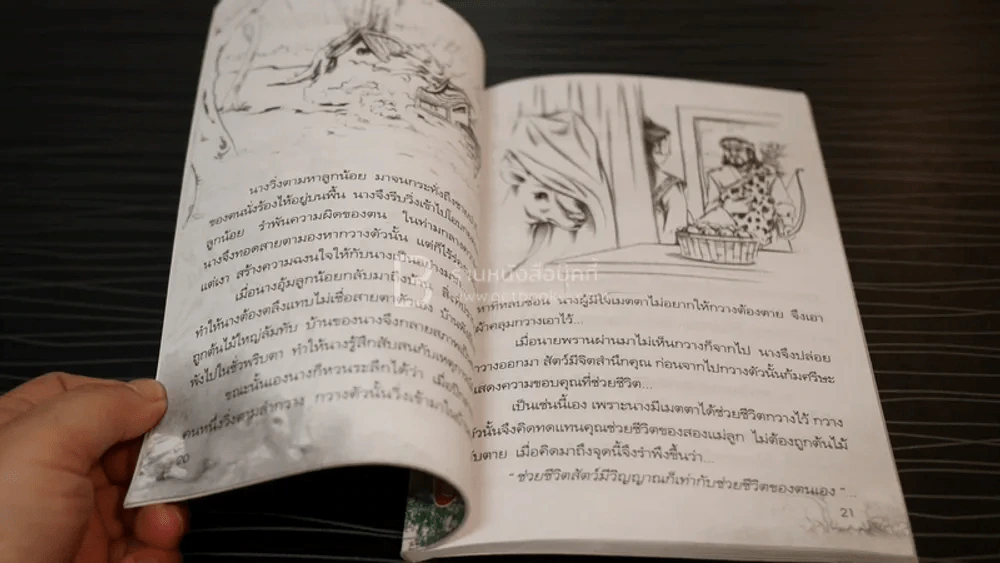 นางวิ่งตามหาลูกน้อย มาจนกระทั่งถึงชายป่า
ของตนนั่งร้องไห้อยู่บนพื้น นางจึงรีบวิ่งเข้าไปโอบกอด
ลูกน้อย รำพันความผิดของตน ในท่ามกลาง
นางจึงทอดสายตามองหากวางตัวนั้น แต่ก็ไร้
แต่เงา สร้างความฉงนใจให้กับนางเป็นอย่างมาก
เมื่อนางอุ้มลูกน้อยกลับมาถึงบ้าน
ทำให้นางต้องตะลึงแทบไม่เชื่อสายตาตัวเอง
ถูกต้นไม้ใหญ่ล้มทับ บ้านของนางจึงกลายสภาพ
พังไปในชั่วพริบตา ทำให้นางรู้สึกสับสนกับเหตุการณ์
ขณะนั้นเองนางก็หวนระลึกได้ว่า
คนหนึ่งวิ่งตามล่ากวาง กวางตัวนั้นวิ่งเข้ามาใน
หาที่หลบซ่อน นางผู้มีใจเมตตาไม่อยากให้กวางต้องตาย จึงเอา
ผ้าคลุมกวางเอาไว้...
เมื่อนายพรานผ่านมาไม่เห็นกวางก็จากไป นางจึงปล่อย
กวางออกมา สัตว์มีจิตสำนึกคุณ ก่อนจากไปกวางตัวนั้นก้มศรีษะ
แสดงความขอบคุณที่ช่วยชีวิต...
เป็นเช่นนี้เอง เพราะนางมีเมตตาได้ช่วยชีวิตกวางไว้ กวาง
ตัวนั้นจึงคิดทดแทนคุณช่วยชีวิตของสองแม่ลูก ไม่ต้องถูกต้นไม้
ทับตาย เมื่อคิดมาถึงจุดนี้จึงรำพึงขึ้นว่า...
“ ช่วยชีวิตสัตว์มีวิญญาณก็เท่ากับช่วยชีวิตของตนเอง ”...
21